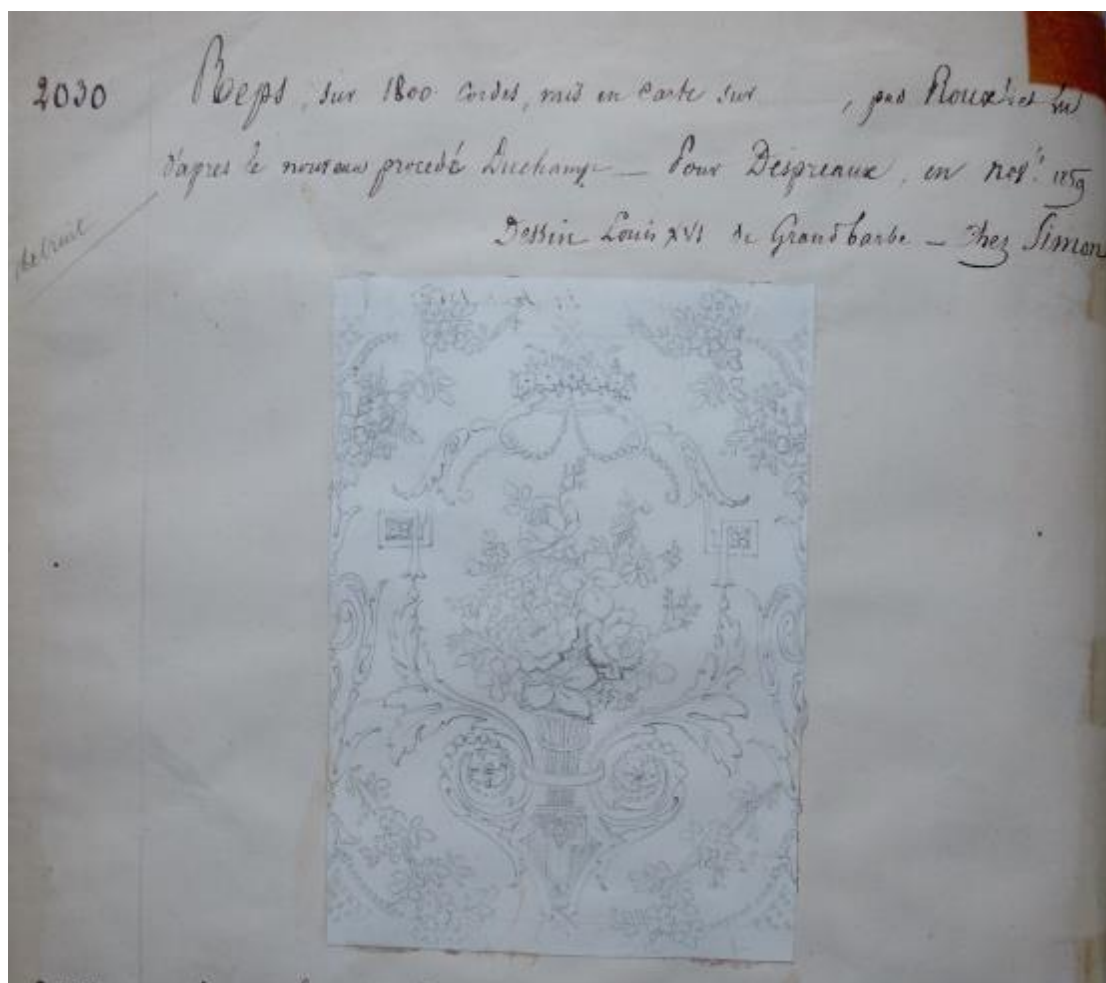 2030 Reps, sur 1800 cordes, mis en carte sur , par Roux et lu
d'apres le nouveau procedé Duchamp — Pour Despreaux, en novr. 1859
Dessin Louis XVI de Grandbarbe — chez Simon
detruit